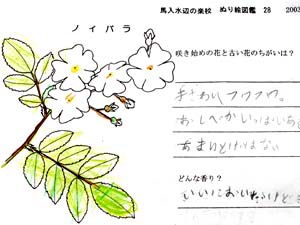 馬入水辺の楽校 ぬり絵図鑑 28 2003
ノイバラ
咲き始めの花と古い花のちがいは?
手ざわりフワフワ。
おしべがいっぱいあ
あまいとげはない
どんな香り?
いいにおい